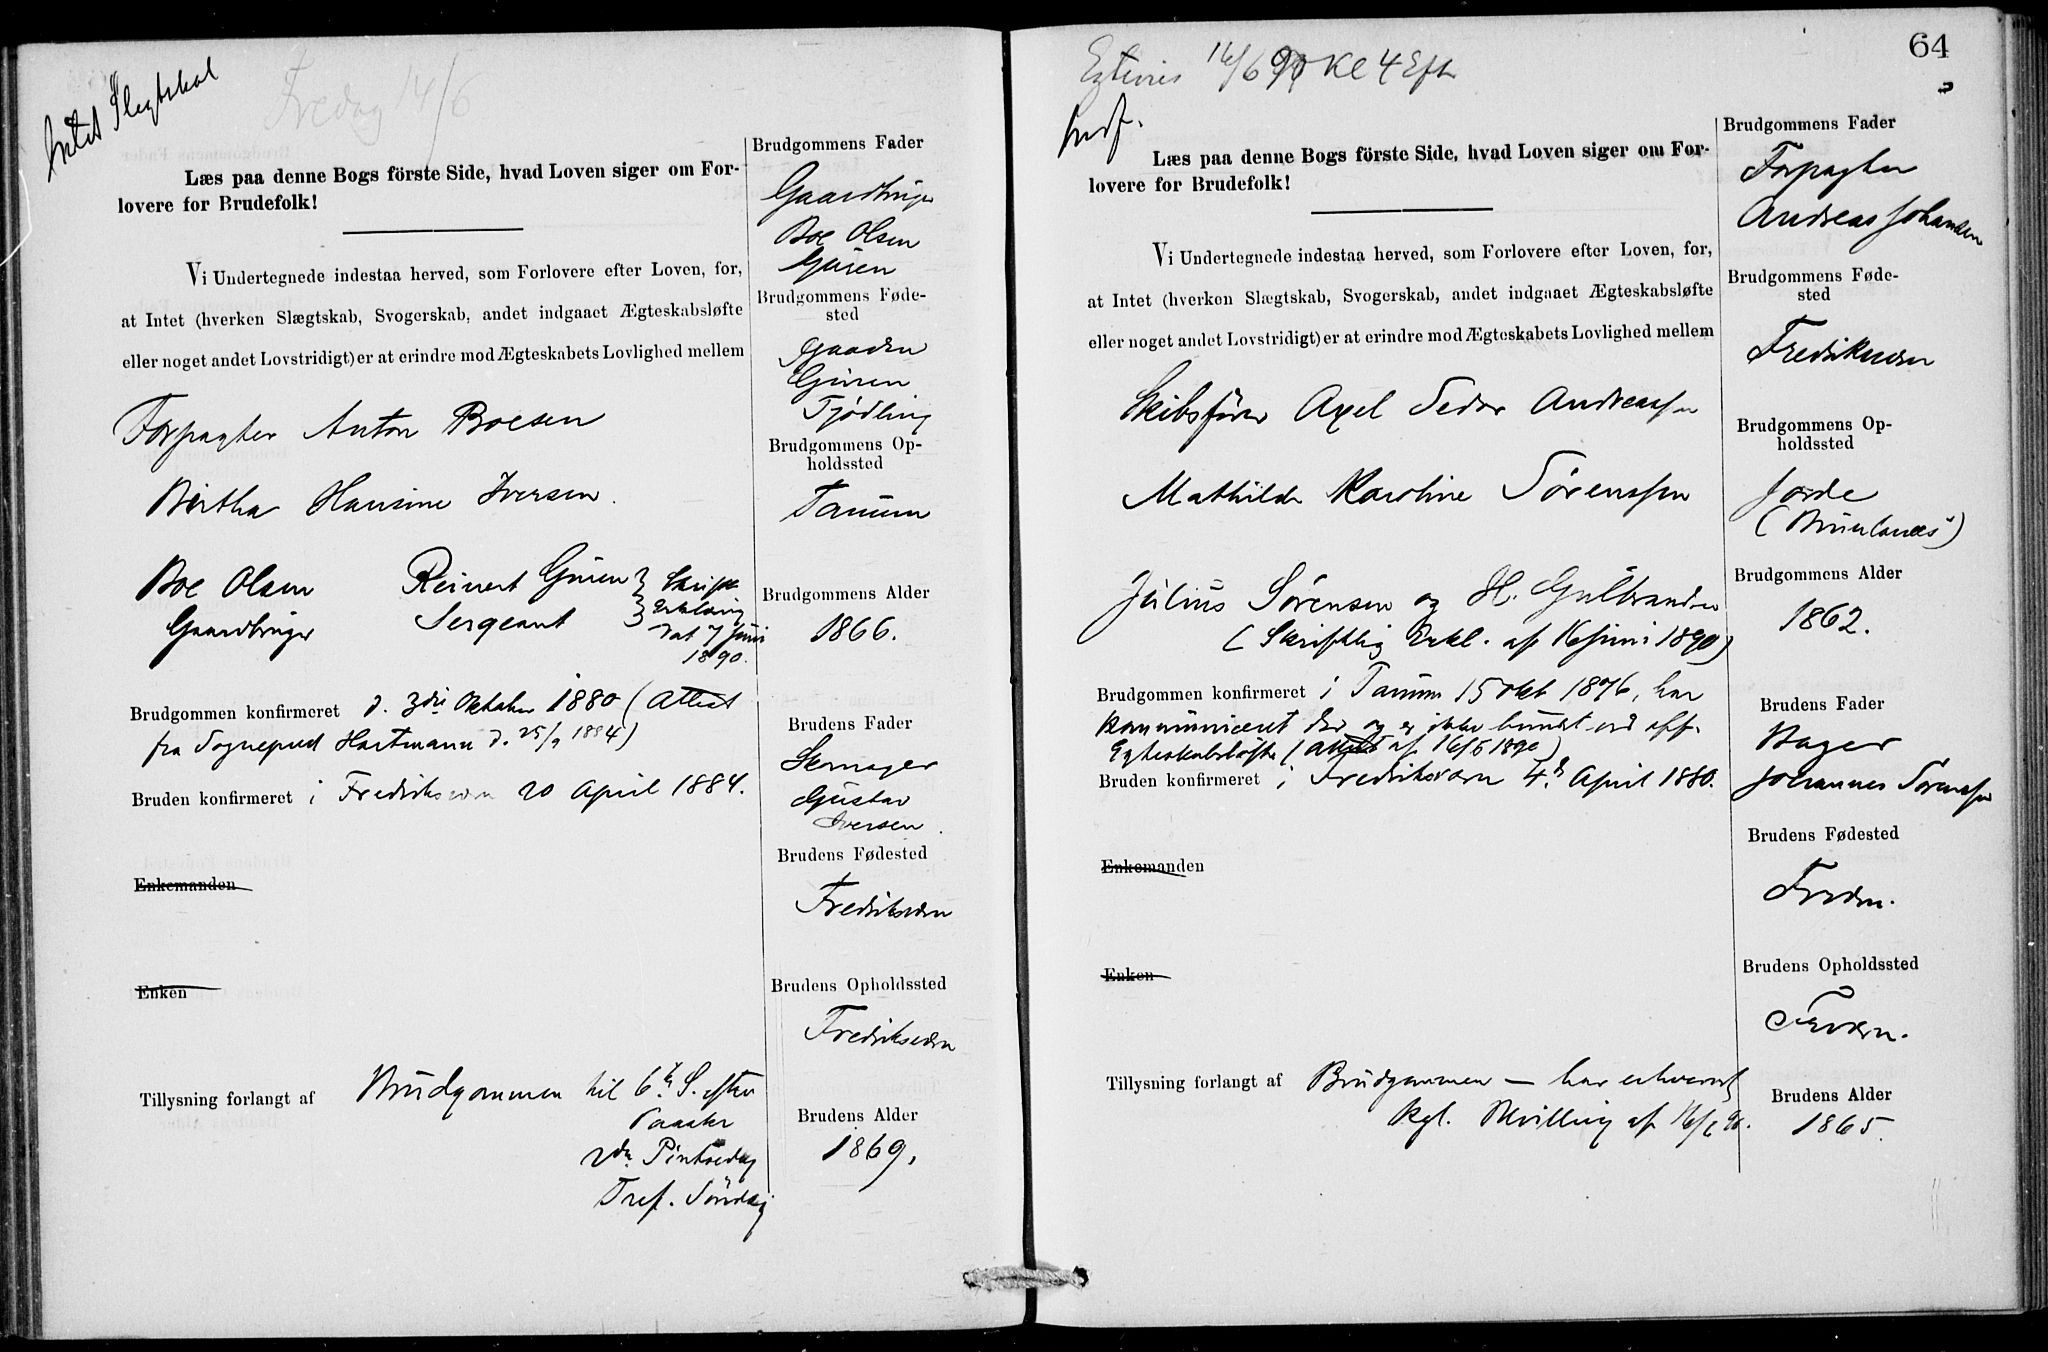 Intet Slegtskab
Fredag 14/6
Læs paa denne Bogs förste Side, hvad Loven siger om For-
lovere for Brudefolk!
Vi Undertegnede indestaa herved, som Forlovere efter Loven, for,
at Intet (hverken Slægtskab, Svogerskab, andet indgaaet Ægteskabsløfte
eller noget andet Lovstridigt) er at erindre mod Ægteskabets Lovlighed mellem
Forpagter Anton Boesen
Bertha Hansine Iversen.
Boe Olsen Reinert Guren
Gaardbruger Sergeant
Skriftl
Erklæring
dat 7 Juni
1890.
Brudgommen konfirmeret d. 3die Oktober 1880 (Attest
fra Sognepræst Hartmann d. 25/9 1884)
Bruden konfirmeret i Fredriksværn 20 April 1884.
Enkemanden
Enken
Tillysning forlangt af Brudgommen til 6te S. efter
Paaske
2den Pintsedag
Tref. Søndag
Brudgommens Fader
Gaardbruger
Boe Olsen
Guren
Brudgommens Føde-
sted
Gaarden
Guren
Tjødling
Brudgommens Op-
holdssted
Tanum
Brudgommens Alder
1866.
Brudens Fader
Gustav
Iversen.
Brudens Fødested
Fredriksværn
Brudens Opholdssted
Fredriksværn
Brudens Alder
1869.
64
16/6 90 Kl 4 Efterm
Indf.
Læs paa denne Bogs förste Side, hvad Loven siger om For-
lovere for Brudefolk!
Vi Undertegnede indestaa herved, som Forlovere efter Loven, for,
at Intet (hverken Slægtskab, Svogerskab, andet indgaaet Ægteskabsløfte
eller noget andet Lovstridigt) er at erindre mod Ægteskabets Lovlighed mellem
Skibsfører Axel Andreassen
Mathilde Karoline Sörenssen
Julius Sörensen og H. Gulbrandsen
(Skriftlig Erkl. af 16 juni 1890)
Brudgommen konfirmeret i Tanum 15 okt 1876, har
kommuniceret der og er ikke bundet ved off.
Egteskabsløfte (attest af 16/6 1890)
Bruden konfirmeret i Fredriksværn 4de April 1880.
Enkemanden
Enken
Tillysning forlangt af Brudgommen — har erhvervet
kgl. Bevilling af 16/6 90.
Brudgommens Fader
Forpagter
Andreas Johansen
Brudgommens Føde-
sted
Fredriksværn
Brudgommens Op-
holdssted
Jorde
(Brunlanæs)
Brudgommens Alder
1862.
Brudens Fader
Bager
Johannes Sörenssen
Brudens Fødested
Frværn.
Brudens Opholdssted
Frværn.
Brudens Alder
1865.